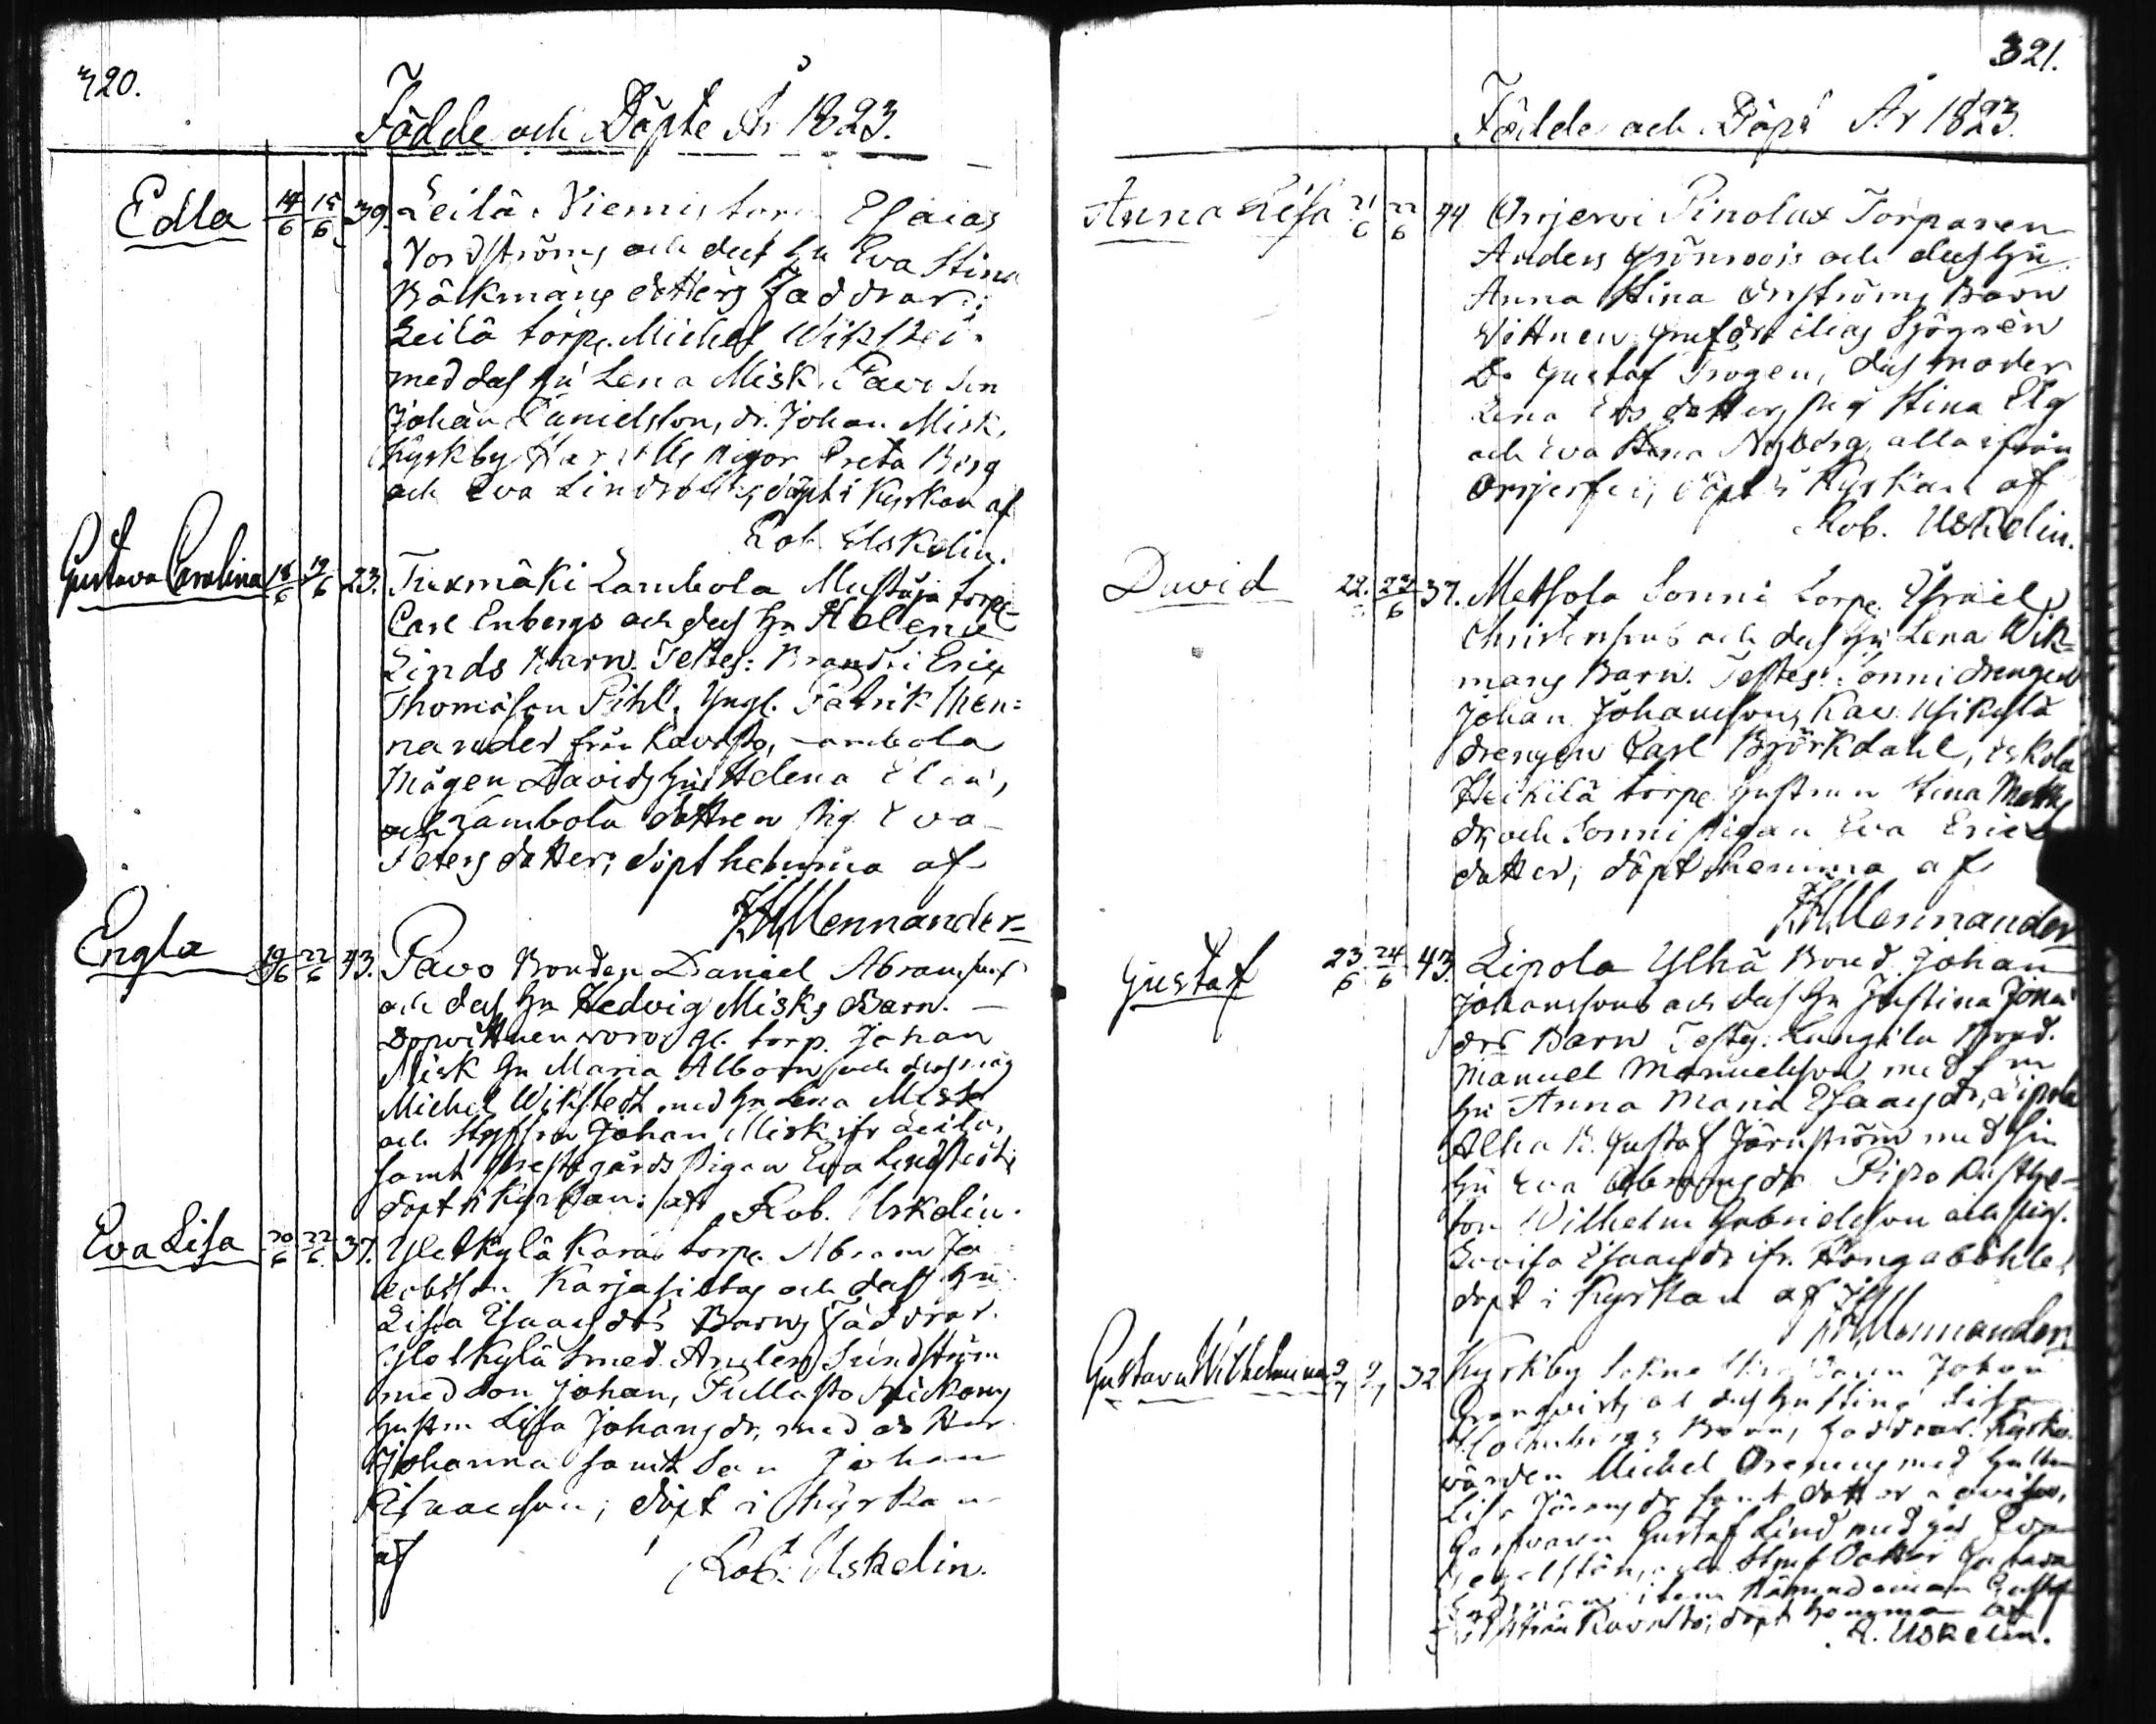 320.
Födde och Döpte År 1823.
Edla 14/6 15/6 39. Leilä Niemis torp Esaias
Nordströms och dess hu Eva Stina
Bäckmans dotters faddrar:
Leilä torp. Michel Wikstedt
med dess hu Lena Misk. Pavo son
Johan Danielsson, dr. Johan Misk,
Kyrkby pigor Greta Berg
och Eva döpt i Kyrkan af
Rob. Uskelin.
Gustava Carolina 18/6 19/6 23. Tuxmäki Lambola Mustaja torp.
Carl Enbergs och dess hu Helena
Linds Barn. Testes: Eric
Thomasson Pihl, Yngl. Patrik Men=
nander från Lavosto, Lambola
Mågen Davids hu Helena
och Lambola dottren Pig. Eva
Peters dotter; döpt hemma af
Mennander
Engla 19/6 22/6 43. Pavo Bonden Daniel Abramsons
och dess hu Hedvig Misks Barn.
Dopvittnen voro gl. torp. Johan
Misk hu Maria Albom och dess måg
Michel Wikstedt med hu Lena Misk
och Styfson Johan Misk ifr Leilä,
samt Prestgårds Pigan Eva Lindstedt;
döpt i Kyrkan; af Rob. Uskelin.
Eva Lisa 20/6 22/6 37. Ylekylä Karas torp. Abram Ja
cobsson Karjasillas och dess hu
Lisa Esaiasdrs Barns faddrar.
Ylekylä Smed. Anders Sundström
med son Johan, Pullasto
hustru Lisa Johansdr, med dotter
Johanna samt Son Johan
Isaacsson; döpt i Kyrkan
af Rob. Uskelin.
321.
Födde och Döpt År 1823.
Anna Lisa 21/6 22/6 44 Orijervi Pinolax Torparen
Anders Grönroos och dess hu
Anna Stina Enströms Barn
Vittnen: Grufdr Elias Sjögren
Do Gustaf Trogen, dess moder
Lena Ersdotter, Pig Stina Elg
och Eva Stina Nyberg alla ifrån
Orijerfvi; döpt i Kyrkan af
Rob. Uskelin.
David 22. 23/6 37. Metsola Sonni torp. Israel
Christerssons och dess hu Lena Wik=
mans Barn. Testes: Sonni drengen
Johan Johansson, Kav. Usikylä
drengen Carl Björkdahl, Eskola
Heikilä torp. hustrun Stina Matts
dr, och Sonni Pigan Eva Erics
dotter; döpt hemma af
Mennander
Gustaf 23/6 24/6 43. Lipola Ylhä Bond. Johan
Johanssons och dess hu Justina Jona
drs Barn Testes. Kungila Bond.
Manuel Manuelsson med sin
hu Anna Maria Esaiasdr, Lipola
Alha B. Gustaf Järnström med sin
hu Eva Abramsdr Pipo Rusthål=
lon Wilhelm Gabrielsson och pig.
Lovisa Esaiasdr ifr. Hongaböhle
döpt i Kyrkan af
Mennander
Gustava Wilhelmina 2/7 2/7 32 Kyrkby Sokne Johan
Granqvists och dess hustru Lisa
Holmbergs Barn, faddrar. Kyrko
värden Michel med hustru
Lisa Jöransdr samt dotter Lovisa,
Garfvaren Gustaf Lind med
och Styf Dotter Gustava
item Nämndeman Gustaf
döpt hemma af
R. Uskelin.